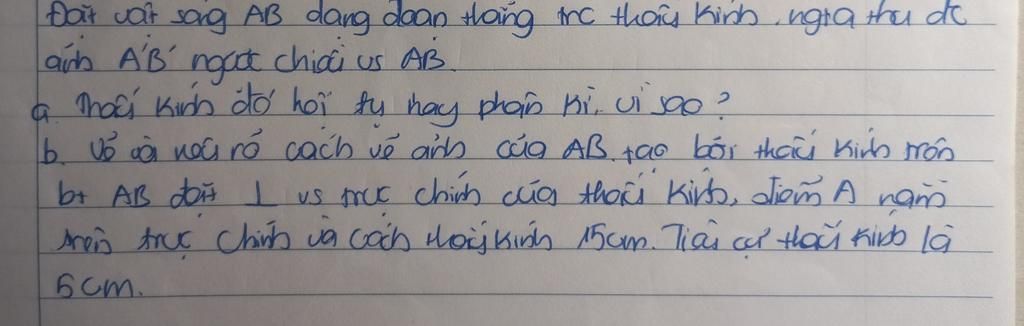 Đặt vật sáng AB dạng đoạn thẳng trc thấu kính, ngta thu đc
ảnh A'B' ngược chiều vs AB.
a. Thấu kính đó hội tụ hay phân kì. Vì sao?
b. Vẽ và nêu rõ cách vẽ ảnh của AB tạo bởi thấu kính trên
bt AB đặt ⊥ vs trục chính của thấu kính, điểm A nằm
trên trục chính và cách thấu kính 15cm. Tiêu cự thấu kính là
5cm.